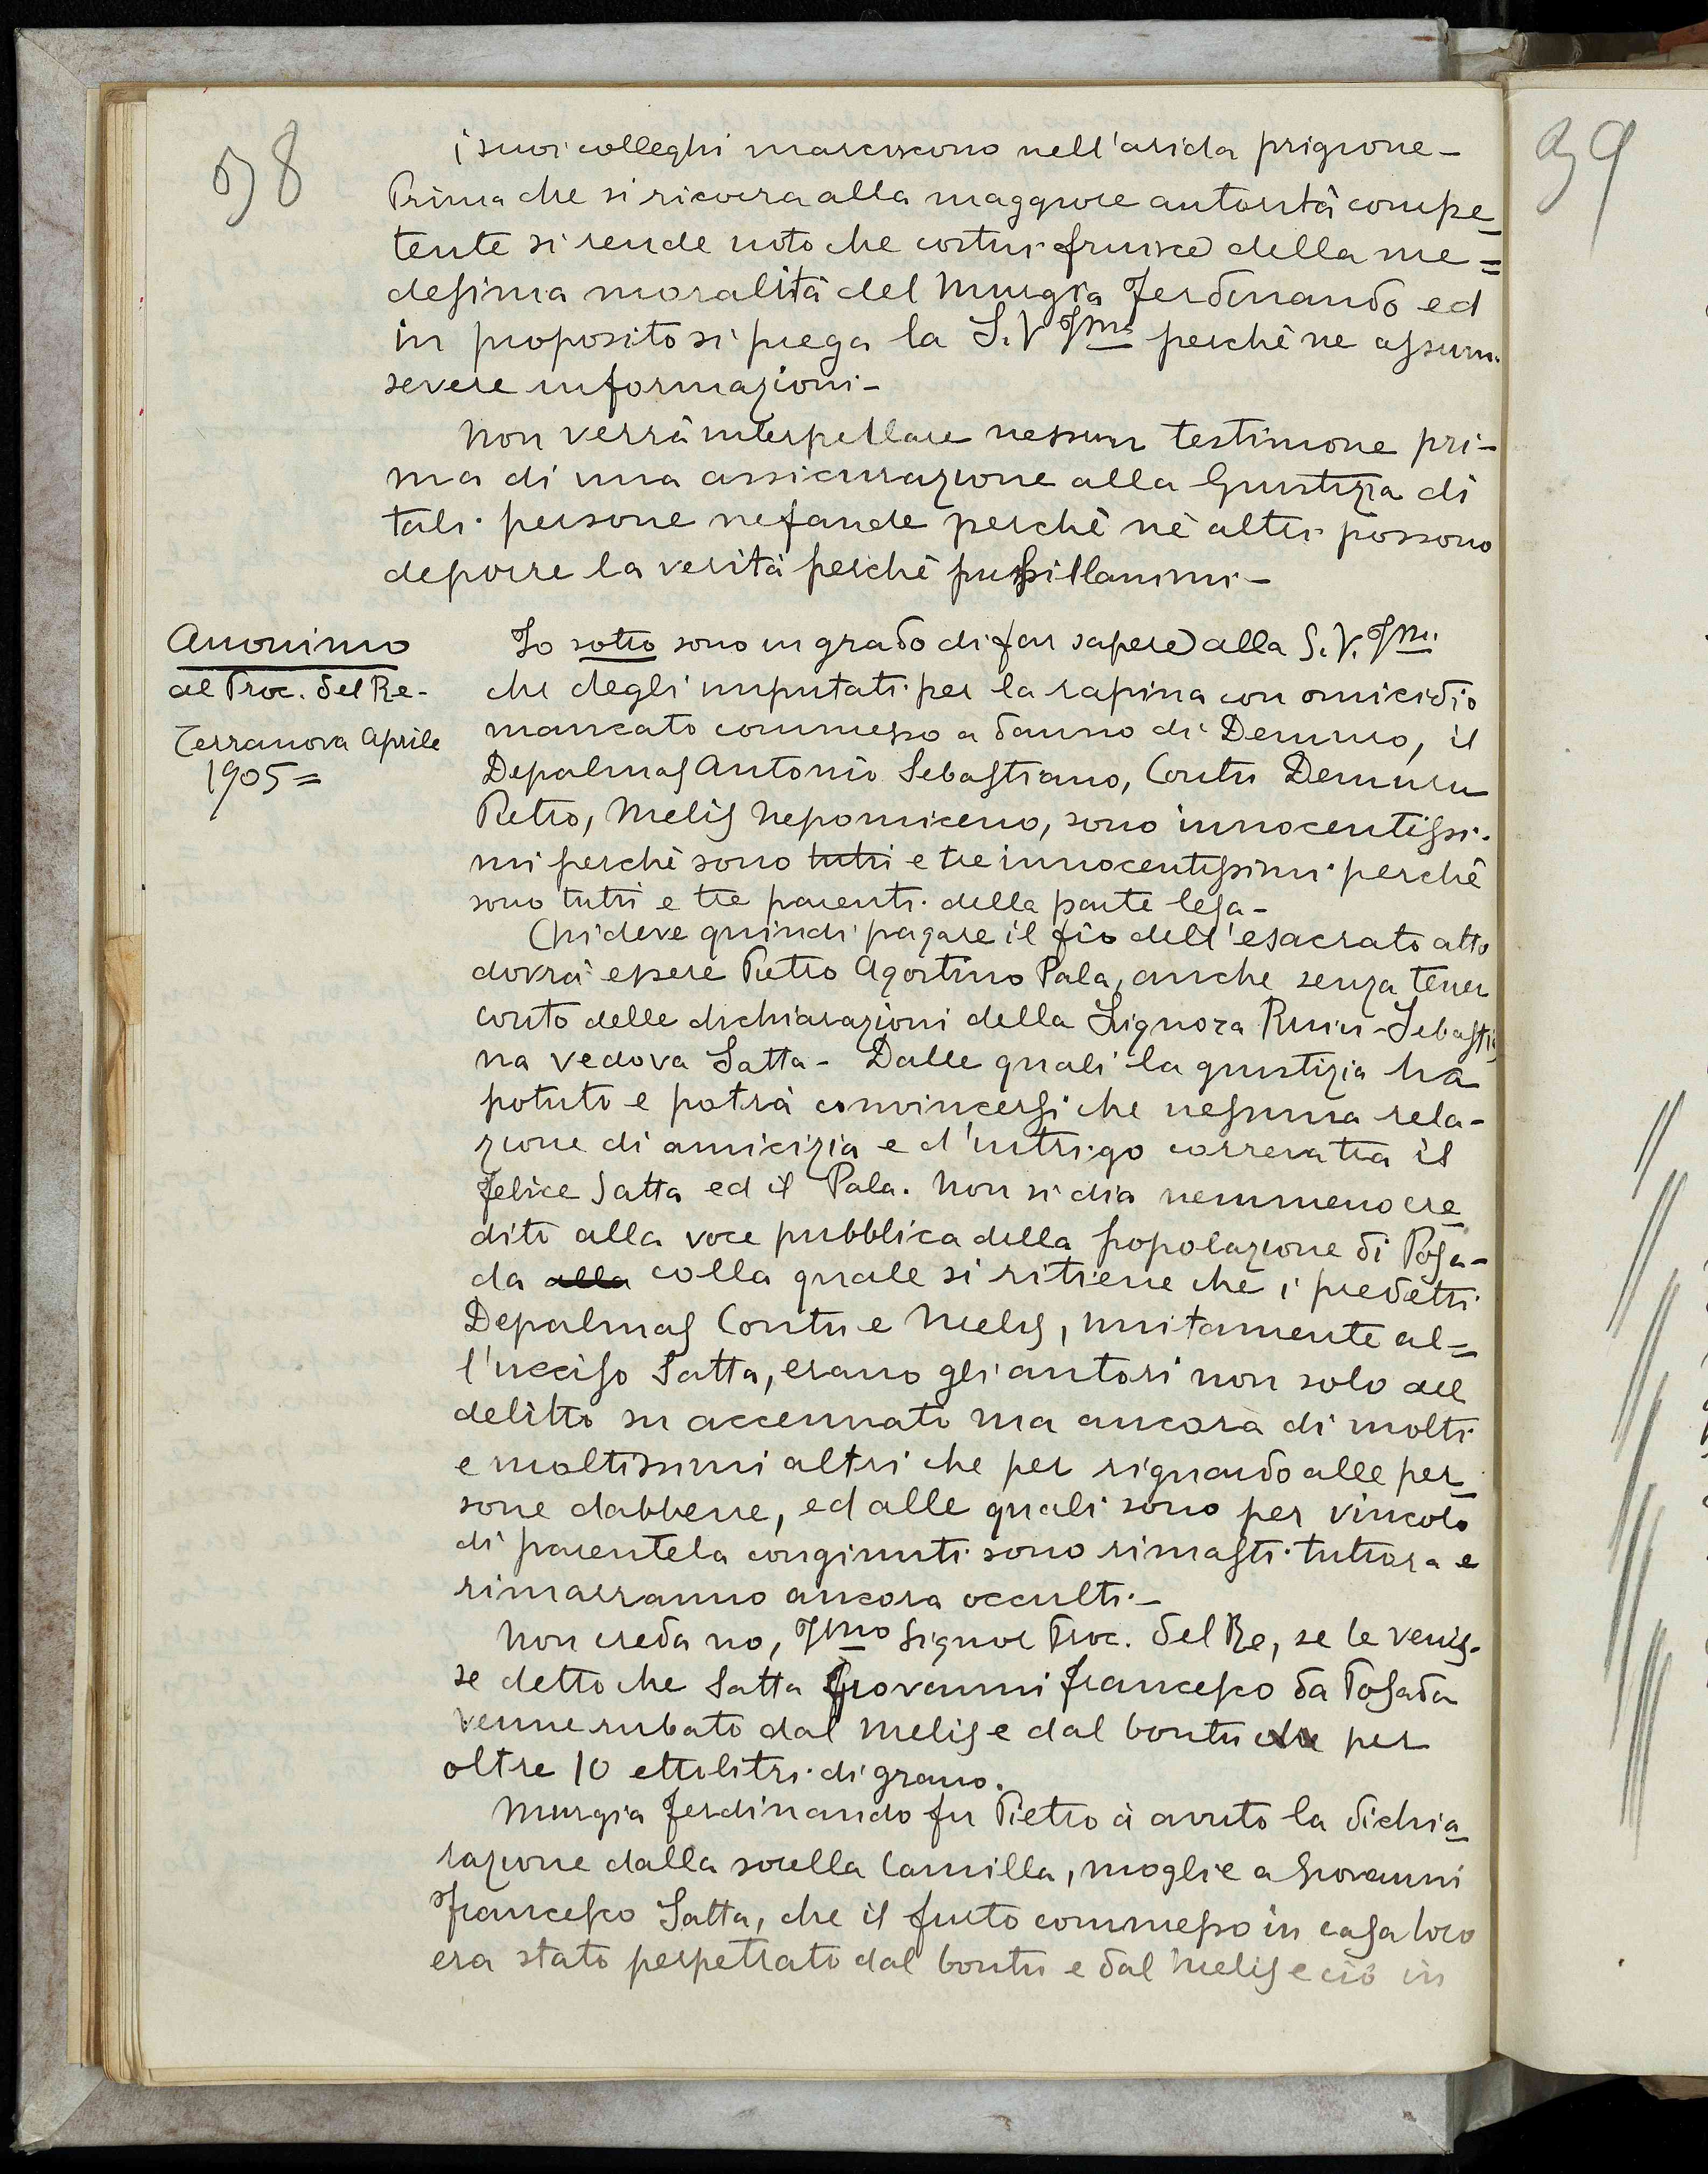 38
39
i suoi colleghi marciscono nell'arida prigione-
Prima che si ricorra alla maggiore autorità compe
tente si rende noto che costui fruisce della me=
desima moralità del Murgia Ferdinando ed
in proposito si prega la S. V. Ima perchè ne assum.
severe informazioni-
Non verrà interpellare nessun testimone pri-
ma di una assicurazione alla Giustizia di
tali persone nefande perchè nè altri possono
deporre la verità perchè pusillanimi-
Anonimo
al Proc. del Re-
Terranova Aprile
1905=
Io sotto sono in grado di far sapere alla S. V. Ima
che degli imputati per la rapina con omicidio
mancato commesso a danno di Demuro, il
Depalmas Antonio Sebastiano, Contu Demuru
Pietro, Melis Nepomiceno, sono innocentissi-
mi perchè sono tutti e tre innocentissimi perchè
sono tutti e tre parenti della parte lesa-
Chi deve quindi pagare il fio dell'esacrato atto
dovrà essere Pietro Agostino Pala, anche senza tener
conto delle dichiarazioni della Signora Ruiu-Sebastia
na vedova Satta- Dalle quali la giustizia ha
potuto e potrà convincersi che nessuna rela-
zione di amicizia e d'intrigo correva tra il
Felice Satta ed il Pala. Non si dia nemmeno cre
dito alla voce pubblica della popolazione di Posa-
da alla colla quale si ritiene che i predetti
Depalmas Contu e Melis, unitamente al=
l'ucciso Satta, erano gli autori non solo del
delitto su accennato ma ancora di molti
e moltissimi altri che per riguardo alle per
sone dabbene, ed alle quali sono per vincolo
di parentela congiunti sono rimasti tuttora e
rimarranno ancora occulti.-
Non creda no, Imo Signor Proc. del Re, se le venis-
se detto che Satta Giovanni Francesco da Posada
venne rubato dal Melis e dal Contu che per
oltre 10 ettolitri di grano.
Murgia Ferdinando fu Pietro à avuto la dichia
razione dalla sorella Camilla, moglie a Giovanni
Francesco Satta, che il furto commesso in casa loro
era stato perpetrato dal Contu e dal Melis e ciò in